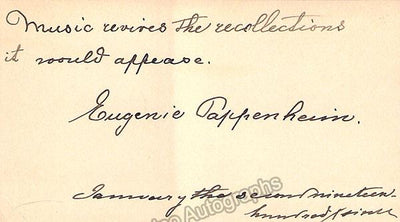 Music revives the recollections
it would appease.
Eugenie Pappenheim.
January the second nineteen
hundred
Autographs